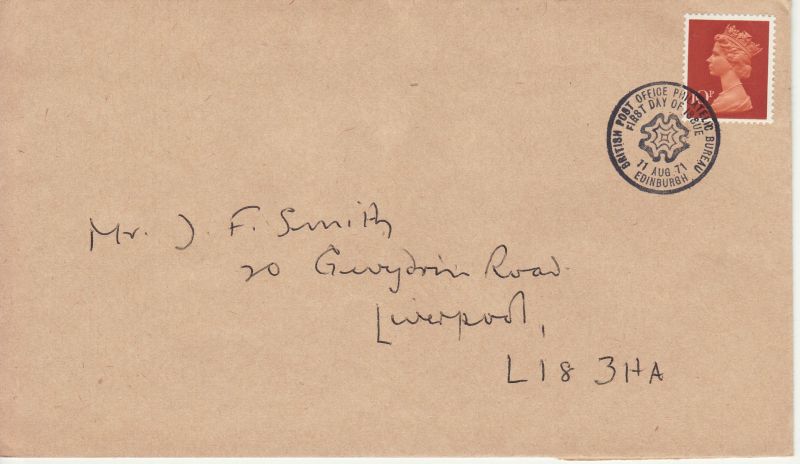 BRITISH POST OFFICE PHILATELIC BUREAU
FIRST DAY OF ISSUE
11 AUG 71
EDINBURGH
Mr. J. F. Smith
20 Gwydrin Road
Liverpool,
L18 3HA